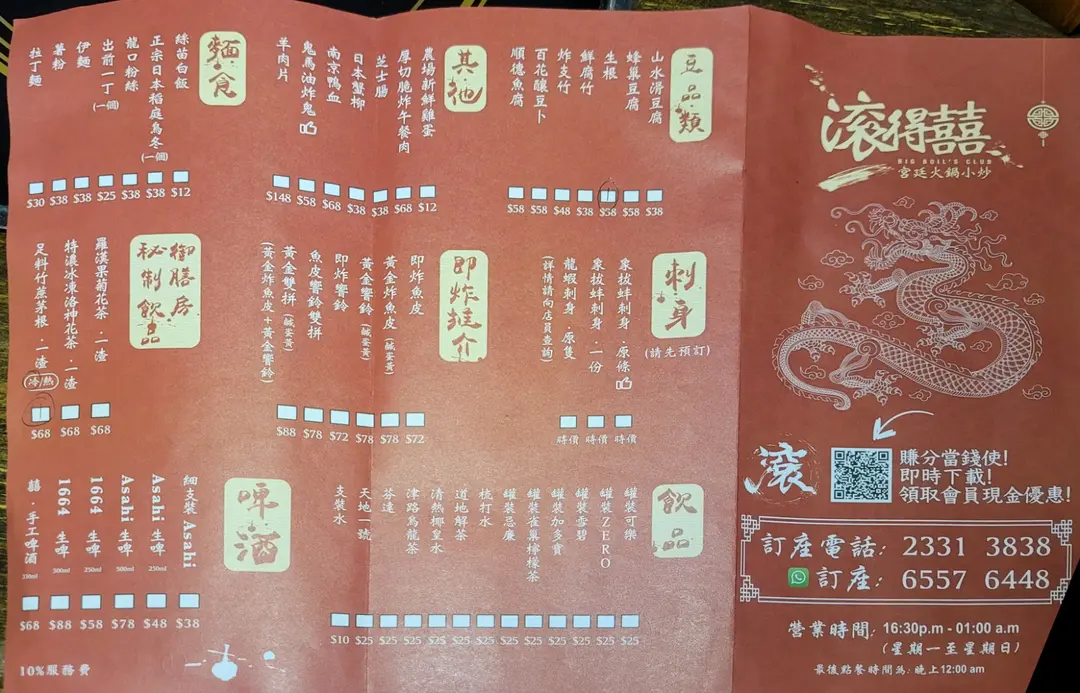 滾得囍
BIG BOIL'S CLUB
宮廷火鍋小炒
滾
賺分當錢使!
即時下載!
領取會員現金優惠!
訂座電話: 2331 3838
訂座: 6557 6448
營業時間: 16:30p.m - 01:00 a.m
(星期一至星期日)
最後點餐時間為: 晚上12:00 am
豆品類
山水滑豆腐 $38
蜂巢豆腐 $58
生根 $58
鮮腐竹 $38
炸支竹 $48
百花釀豆卜 $58
順德魚腐 $58
其他
農場新鮮雞蛋 $12
厚切脆炸午餐肉 $68
芝士腸 $38
日本蟹柳 $38
南京鴨血 $68
鬼馬油炸鬼 $58
羊肉片 $148
麵食
絲苗白飯 $12
正宗日本稻庭烏冬(一個) $38
龍口粉絲 $38
出前一丁(一個) $25
伊麵 $38
薯粉 $38
拉丁麵 $30
刺身
(請先預訂)
象拔蚌刺身．原條 時價
象拔蚌刺身．一份 時價
龍蝦刺身．原隻 時價
(詳情請向店員查詢)
即炸推介
即炸魚皮 $72
黃金炸魚皮(鹹蛋黃) $78
黃金響鈴(鹹蛋黃) $78
即炸響鈴 $72
魚皮響鈴雙拼 $78
黃金雙拼(鹹蛋黃) $88
(黃金炸魚皮+黃金響鈴)
御膳房秘制飲品
羅漢果菊花茶．一渣 $68
特濃冰凍洛神花茶．一渣 $68
足料竹蔗茅根．一渣 冷/熱 $68
飲品
罐裝可樂 $25
罐裝ZERO $25
罐裝雪碧 $25
罐裝加多寶 $25
罐裝雀巢檸檬茶 $25
罐裝忌廉 $25
梳打水 $25
道地解茶 $25
清熱椰皇水 $25
津路烏龍茶 $25
芬達 $25
天地一號 $25
支裝水 $10
啤酒
細支裝 Asahi $38
Asahi 生啤 250ml $48
Asahi 生啤 500ml $78
1664 生啤 250ml $58
1664 生啤 500ml $88
囍 手工啤酒 350ml $68
10%服務費